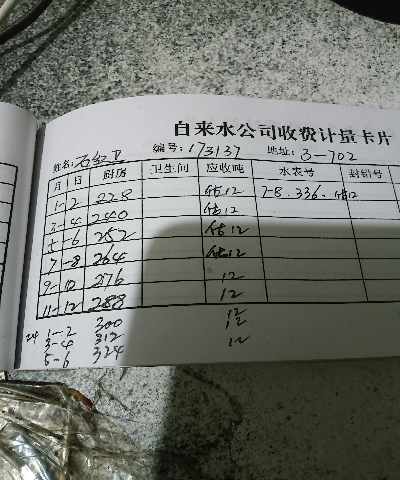 自来水公司收费计量卡片
姓名：石红卫 编号：173137 地址：3-702
月 日 厨房 卫生间 应收吨 水表号 封铅号
1-2 228 估12 7-8.336.估12
3-4 240 估12
5-6 252 估12
7-8 264 估12
9-10 276 12
11-12 288 12
24 1-2 300 12
3-4 312 12
5-6 324 12